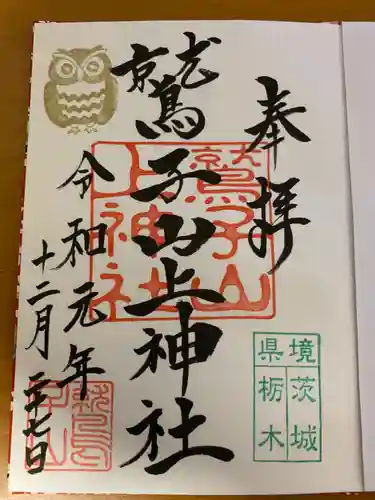 奉拝
鷲子山上神社
令和元年
十二月二十七日
鷲子山
上神社
境茨城
県栃木